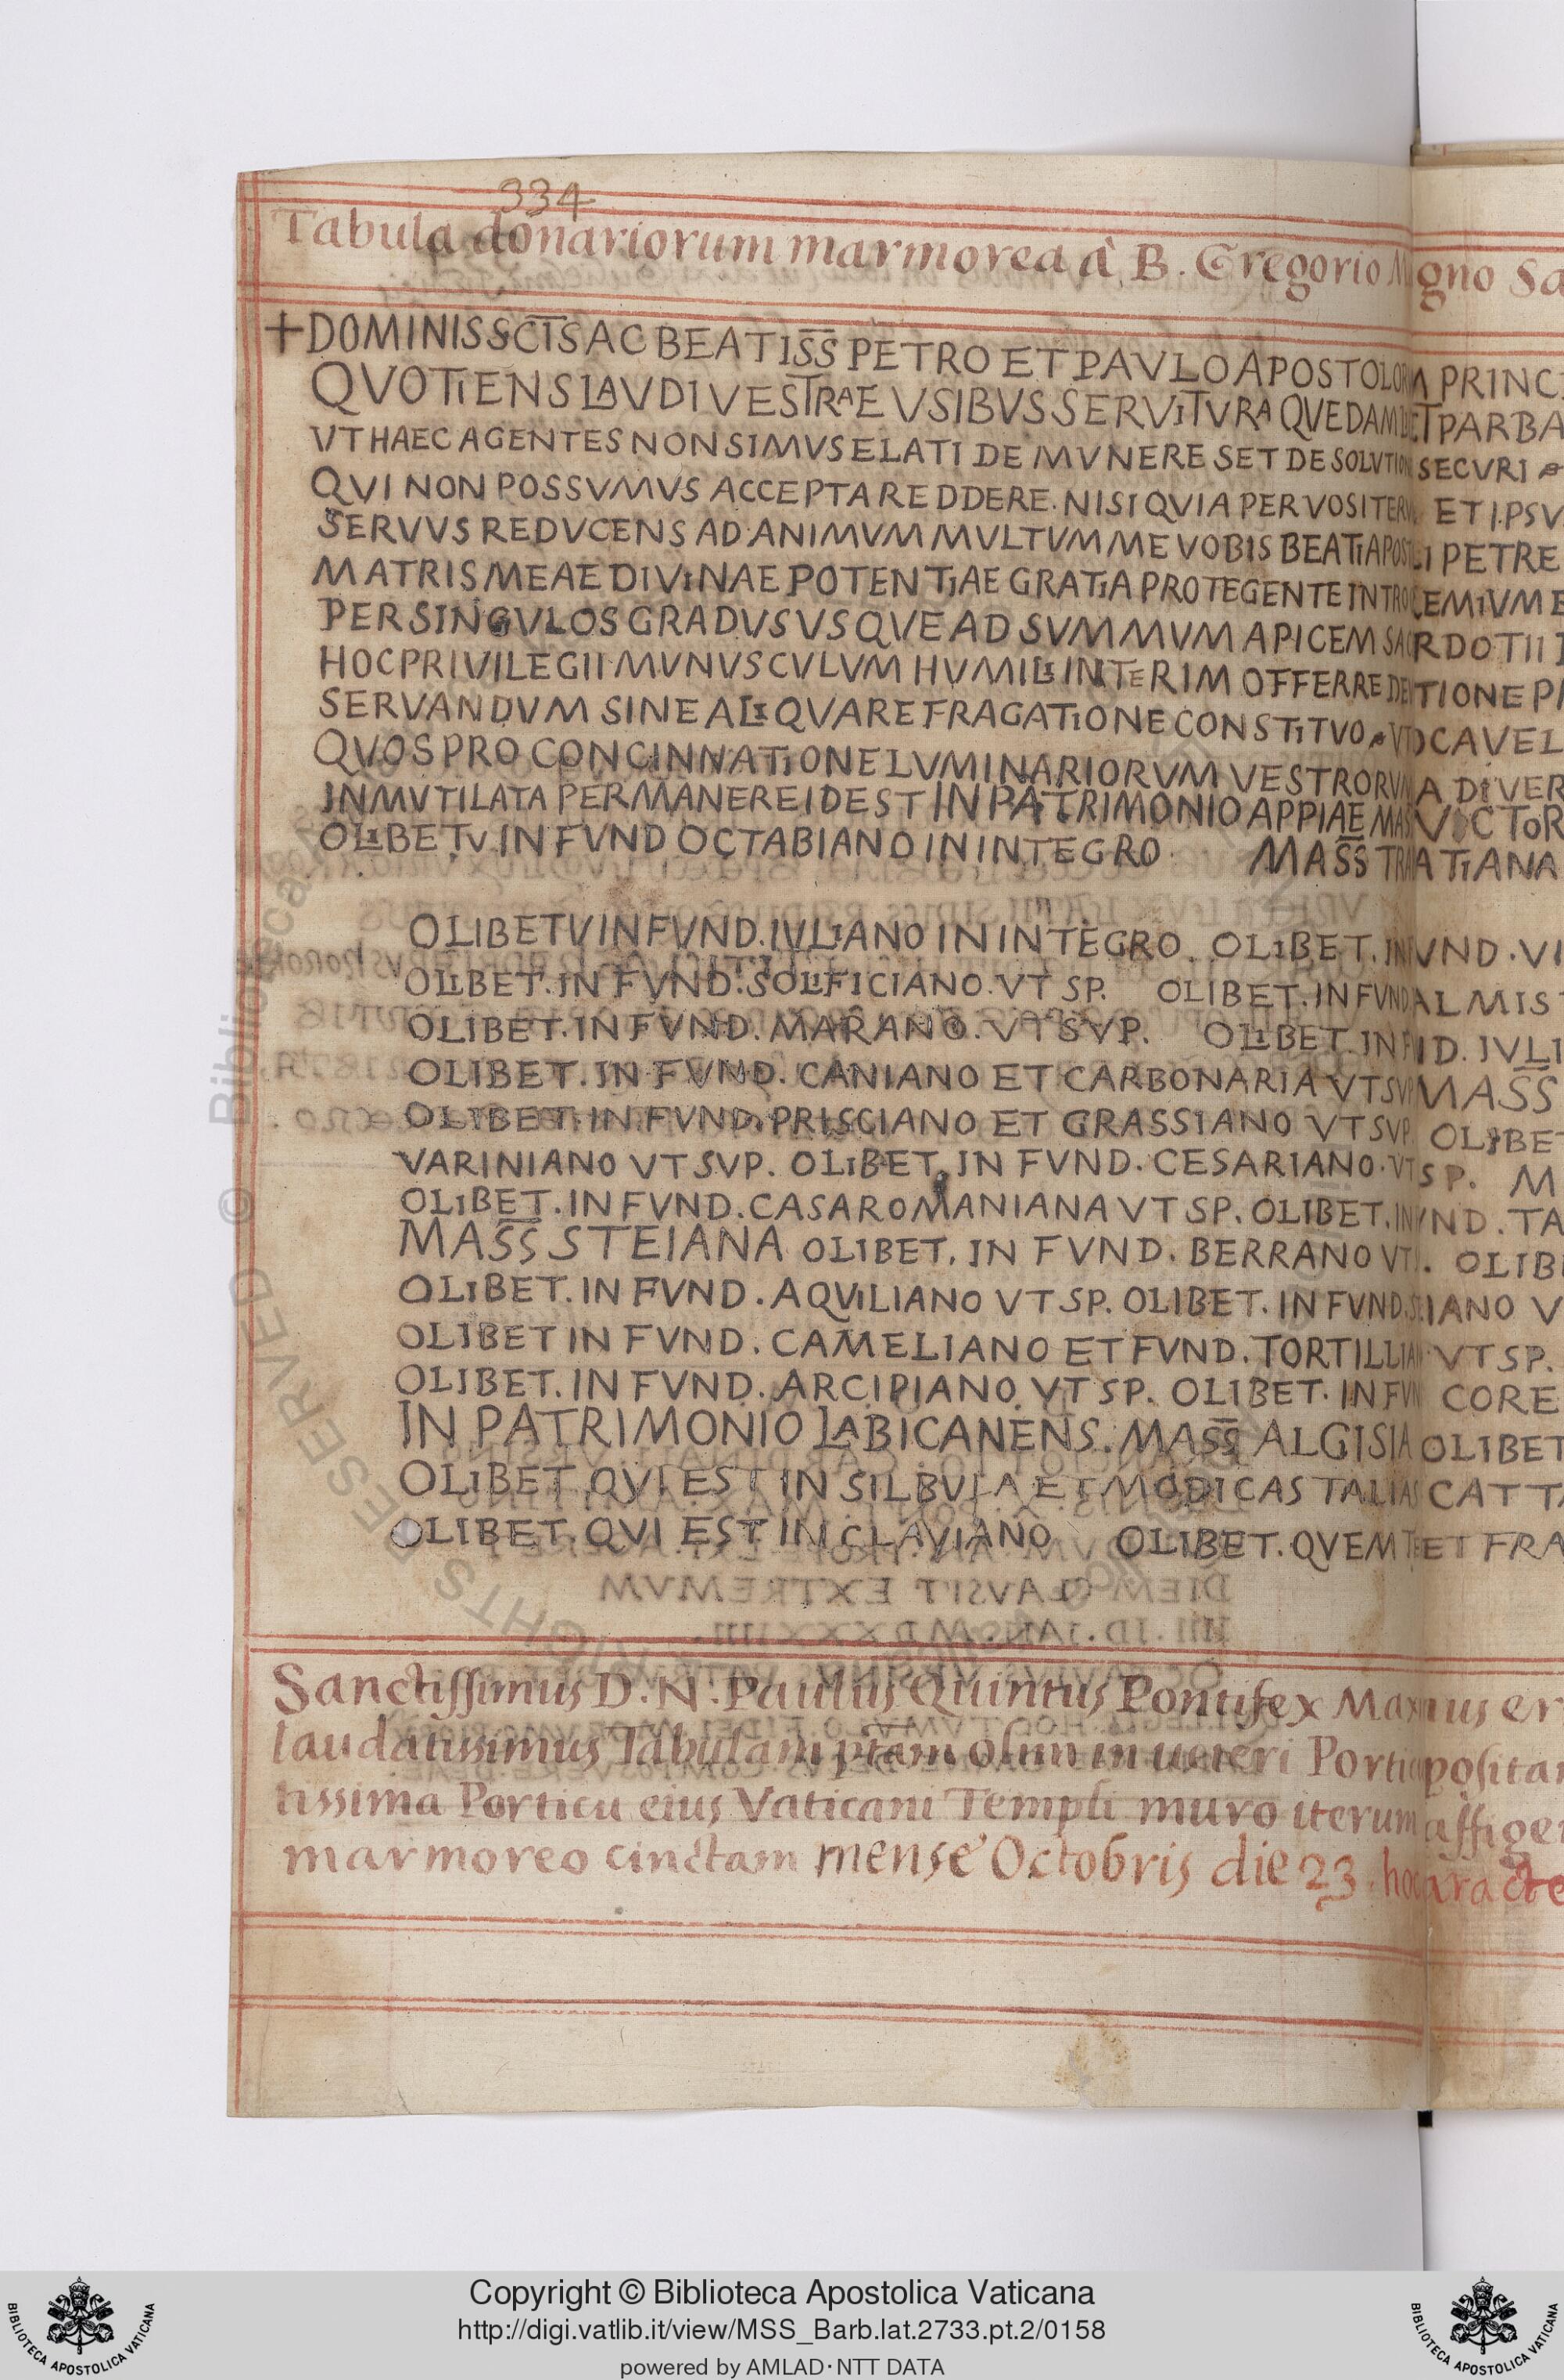 334
Tabula donariorum marmorea à B. Gregorio M gno Sa
+ DOMINIS SCIS AC BEATISS PETRO ET PAVLO APOSTOLORVM PRINC
QVOTIENS LAVDI VESTRAE VSIBVS SERVITVRA QVEDAM ET PARBA
VT HAEC AGENTES NON SIMVS ELATI DE MVNERE SET DE SOLVTION SECVRI
QVI NON POSSVMVS ACCEPTA REDDERE. NISI QVIA PER VOS ITERVM ET IPSV
SERVVS REDVCENS AD ANIMVM MVLTVM ME VOBIS BEATI APOST LI PETRE
MATRIS MEAE DIVINAE POTENTIAE GRATIA PROTEGENTE INTRO EMIVM E
PER SINGVLOS GRADVS VSQVE AD SVMMVM APICEM SACRDOTII I
HOC PRIVILEGII MVNVSCVLVM HVMILI INTERIM OFFERRE DEVTIONE P
SERVANDVM SINE ALIQVA REFRAGATIONE CONSTITVO VT OCA VEL
QVOS PRO CONCINNATIONE LVMINARIORVM VESTRORVM A DIVER
INMVTILATA PERMANERE ID EST IN PATRIMONIO APPIAE MAS VICTOR
OLIBETV IN FVND OCTABIANO IN INTEGRO MASS TRAATIANA
OLIBETV IN FVND. IVLIANO IN INTEGRO. OLIBET. IN FVND. VI
OLIBET. IN FVND. SOLFICIANO. VT SP. OLIBET. IN FVND ALMIS
OLIBET. IN FVND. MARANO. VT SVP. OLIBET. IN F ND. IVLI
OLIBET. IN FVND. CANIANO ET CARBONARIA VT SVP MASS
OLIBET. IN FVND. PRISCIANO ET GRASSIANO VT SVP. OLIBET
VARINIANO VT SVP. OLIBET. IN FVND. CESARIANO. VT SP. M
OLIBET. IN FVND. CASAROMANIANA VT SP. OLIBET. IN VND. TA
MASS STEIANA OLIBET. IN FVND. BERRANO VT . OLIB
OLIBET. IN FVND. AQVILIANO VT SP. OLIBET. IN FVND. S IANO V
OLIBET IN FVND. CAMELIANO ET FVND. TORTILLIAN VT SP.
OLIBET. IN FVND. ARCIPIANO VT SP. OLIBET. IN FVN CORE
IN PATRIMONIO LABICANENS. MASS ALGISIA OLIBET
OLIBET QVI EST IN SILBVLA ET MODICAS TALIAS CATTA
OLIBET. QVI EST IN CLAVIANO OLIBET. QVEM T ET FRA
Sanctissimus D. N. Paulus Quintus Pontifex Maximus er
laudatissimus Tabulam ptam olim in ueteri Portic positam
tissima Porticu eius Vaticani Templi muro iterum affige
marmoreo cinctam mense Octobris die 23 hoc
Copyright © Biblioteca Apostolica Vaticana
http://digi.vatlib.it/view/MSS_Barb.lat.2733.pt.2/0158
powered by AMLAD·NTT DATA
BIBLIOTECA APOSTOLICA VATICANA
BIBLIOTECA APOSTOLICA VATICANA